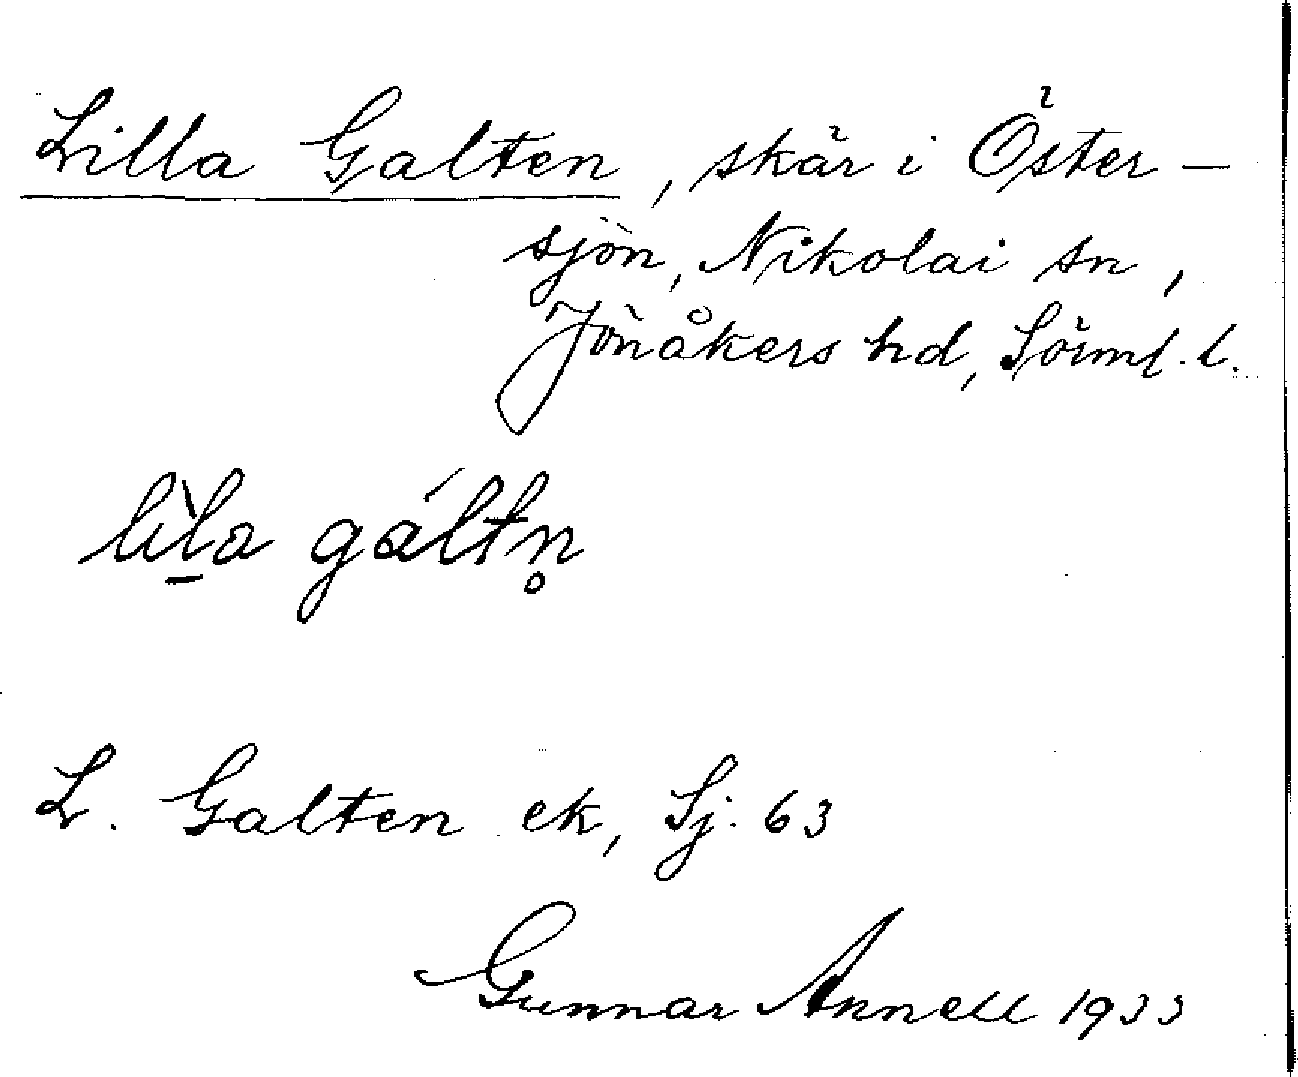 Lilla Galten, skär i Öster-
sjön, Nikolai sn,
Jönåkers hd, Söiml. l.
lìl̠a gáltn̥
L. Galten ek, Sj. 63
Gunnar Annell 1933